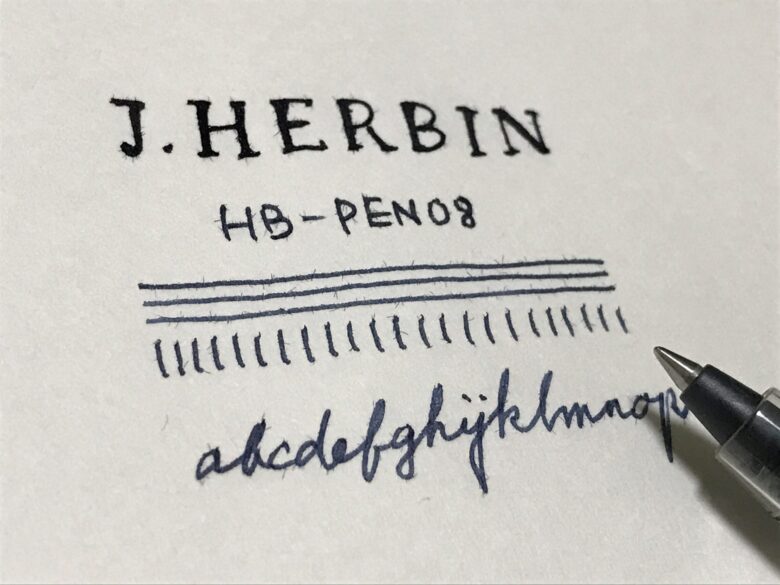 J. HERBIN
HB-PEN08
abcdefghijklmnop